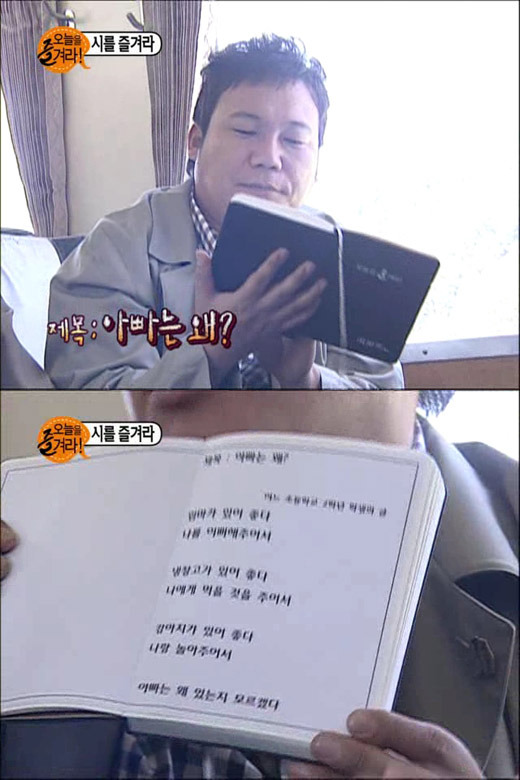 오늘을
즐겨라!
시를 즐겨라
제목 : 아빠는 왜?
오늘을
즐겨라!
시를 즐겨라
제목 : 아빠는 왜?
어느 초등학교 2학년 학생의 글
엄마가 있어 좋다
나를 이뻐해주어서
냉장고가 있어 좋다
나에게 먹을 것을 주어서
강아지가 있어 좋다
나랑 놀아주어서
아빠는 왜 있는지 모르겠다